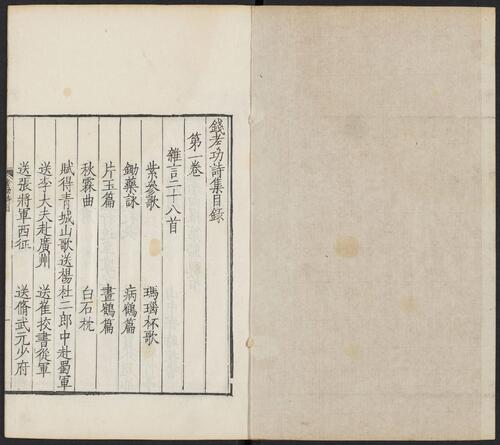 錢考功詩集目錄
第一卷
雜言二十八首
紫參歌 瑪瑙杯歌
鋤藥詠 病鶴篇
片玉篇 畫鶴篇
秋霖曲 白石枕
賦得青城山歌送楊杜二郎中赴蜀軍
送李大夫赴廣州 送崔挍書從軍
送張將軍西征 送脩武元少府